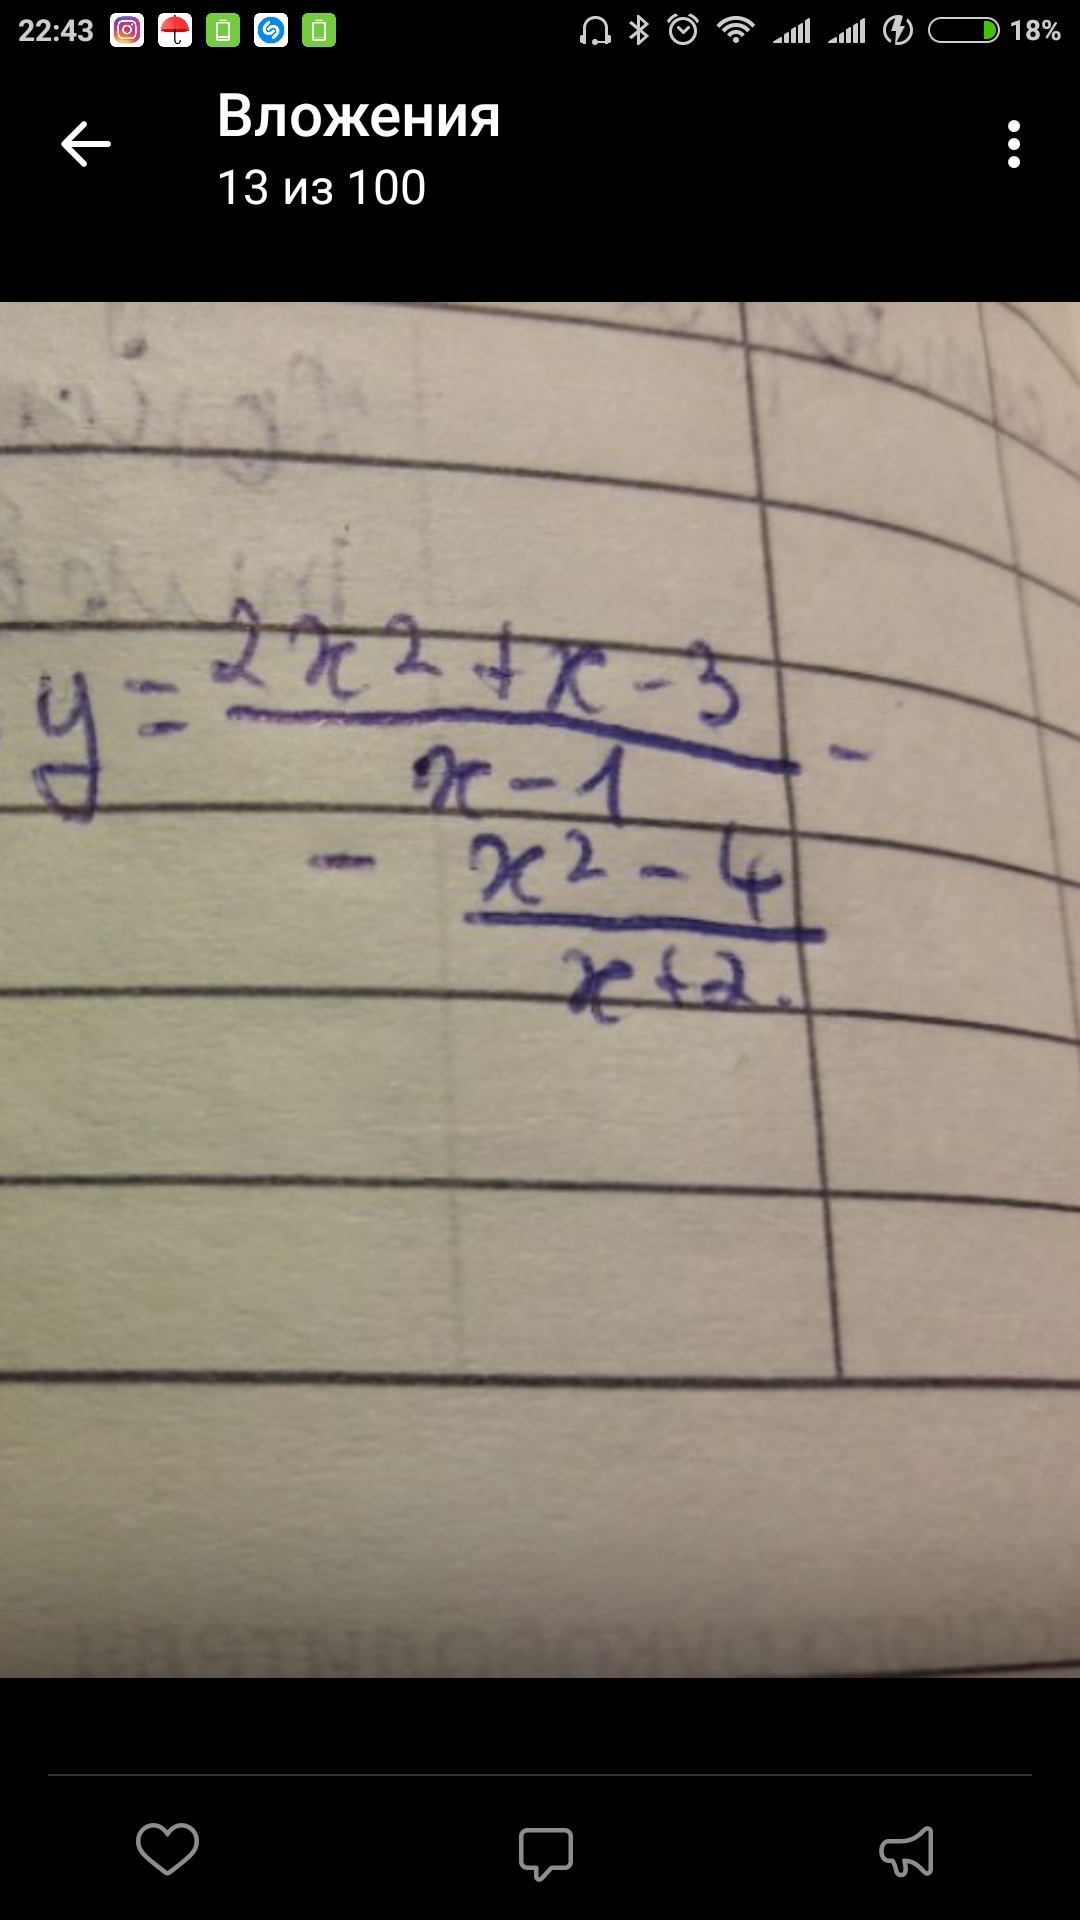 22:43 18%
Вложения
13 из 100
y = 2x2 + x - 3 -
x - 1
- x2 - 4
x + 2.